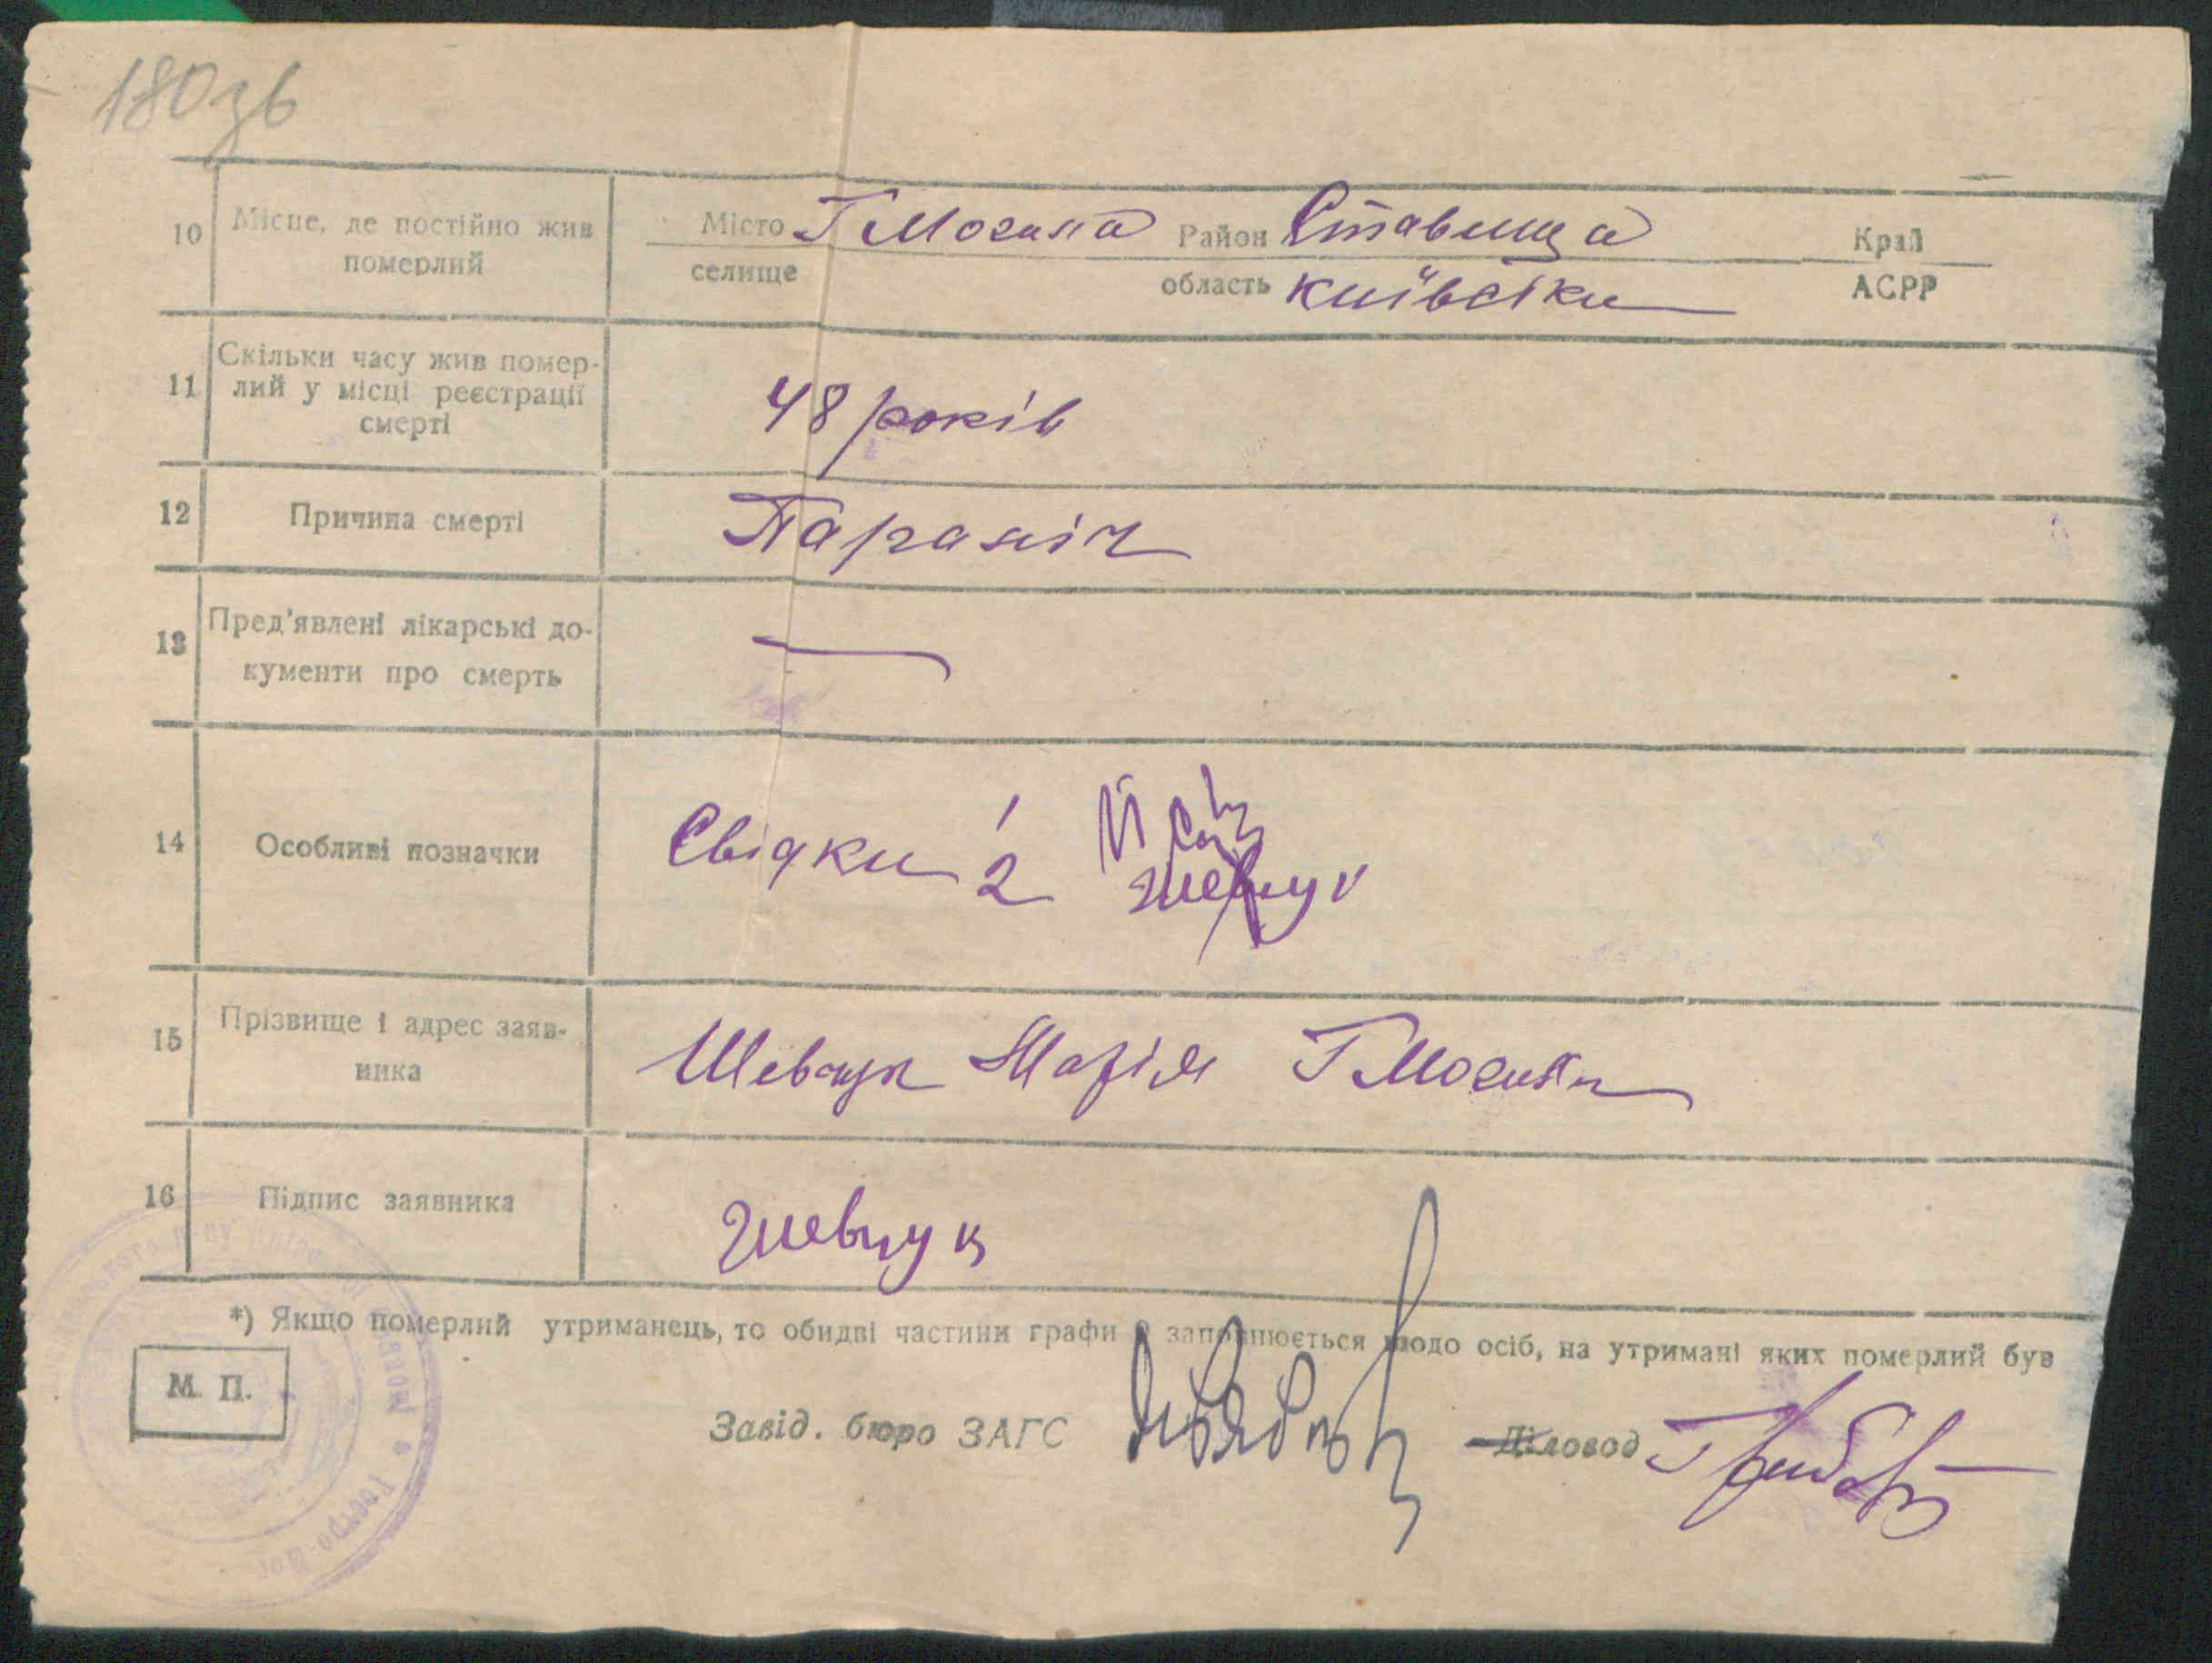 180 зв
10 Місце, де постійно жив померлий
Місто Г Могила Район Ставища Край
селище область київськи АСРР
11 Скільки часу жив помер-
лий у місці реєстрації
смерті
48 років
12 Причина смерті
Параліч
13 Пред'явлені лікарські до-
кументи про смерть
—
14 Особливі позначки
Свідки 1
2 Шевчук
15 Прізвище і адрес заяв-
ника
Шевчук Марія Г Могила
16 Підпис заявника
Шевчук
*) Якщо померлий утриманець, то обидві частини графи 9 заповнюється щодо осіб, на утримані яких померлий був
М. П.
Завід. бюро ЗАГС Діловод